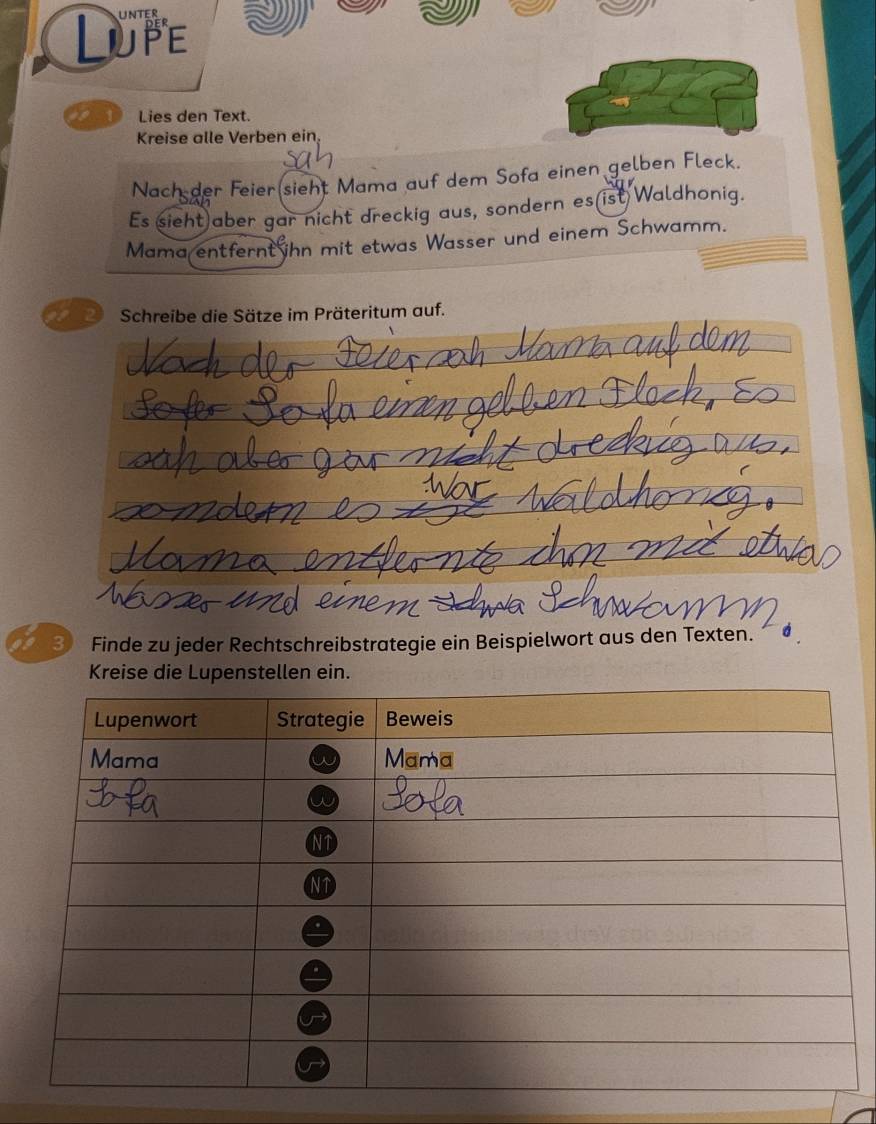 UNTER
DER
LUPE
1 Lies den Text.
Kreise alle Verben ein.
sah
Nach der Feier sieht Mama auf dem Sofa einen gelben Fleck.
sah war
Es sieht aber gar nicht dreckig aus, sondern es ist Waldhonig.
e
Mama entfernt ihn mit etwas Wasser und einem Schwamm.
2 Schreibe die Sätze im Präteritum auf.
Nach der Feier sah Mama auf dem
Sofer Sofa einen gelben Fleck, Es
sah aber gar nicht dreckig aus,
war
sondern es ist Waldhonig.
Mama entfernte ihn mit etwas
Wasser und einem schwa Schwamm.
3 Finde zu jeder Rechtschreibstrategie ein Beispielwort aus den Texten.
Kreise die Lupenstellen ein.
Lupenwort Strategie Beweis
Mama Mama
Sofa Sofa
N↑
N↑